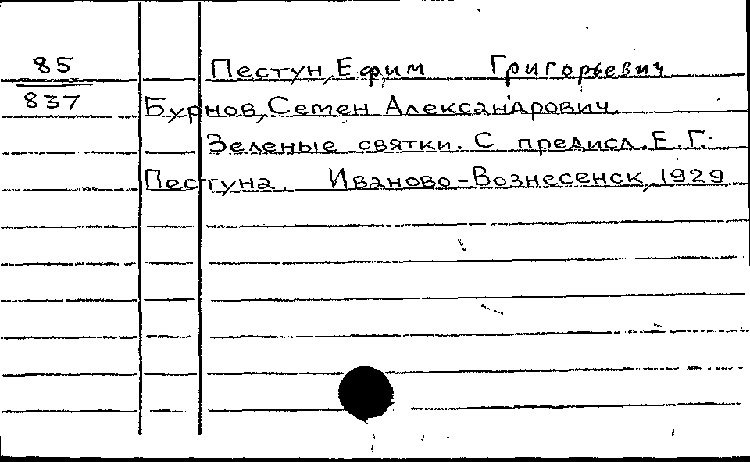 85 Пестун, Ефим Григорьевич
837 Бурнов, Семен Александрович.
Зеленые святки. С предисл. Е. Г.
Пестуна. Иваново-Вознесенск, 1929